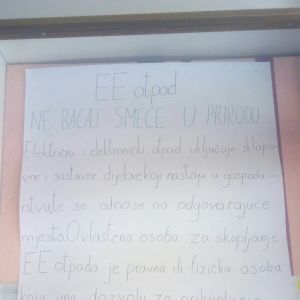 EE otpad
NE BACAJ SMEĆE U PRIRODU
Električni i elektronički otpad uključuje sklapo-
vne i sastavne dijelovekoji nastaju u gospoda-
rstvute se odnose na odgovarajuće
mjesto.Ovlaštena osoba za skupljanje
EE otpada je pravna ili fizička osoba
koja ima dozvolu za